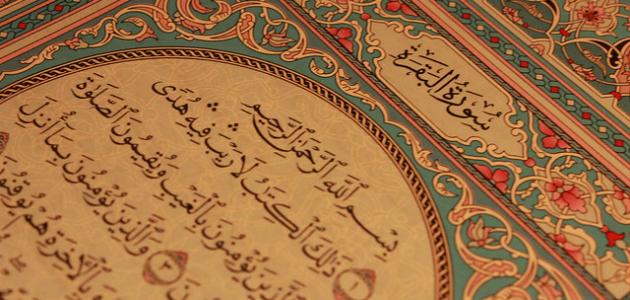 سُورَةُ البَقَرَةِ
بِسْمِ ٱللَّهِ ٱلرَّحْمَٰنِ ٱلرَّحِيمِ
١ ذَٰلِكَ ٱلْكِتَٰبُ لَا رَيْبَ ۛ فِيهِ ۛ هُدًى
ٱلَّذِينَ يُؤْمِنُونَ بِٱلْغَيْبِ وَيُقِيمُونَ ٱلصَّلَوٰةَ
ونَ ٣ وَٱلَّذِينَ يُؤْمِنُونَ بِمَآ أُنزِلَ
وَبِٱلْأَخِرَةِ هُمْ يُوقِنُونَ